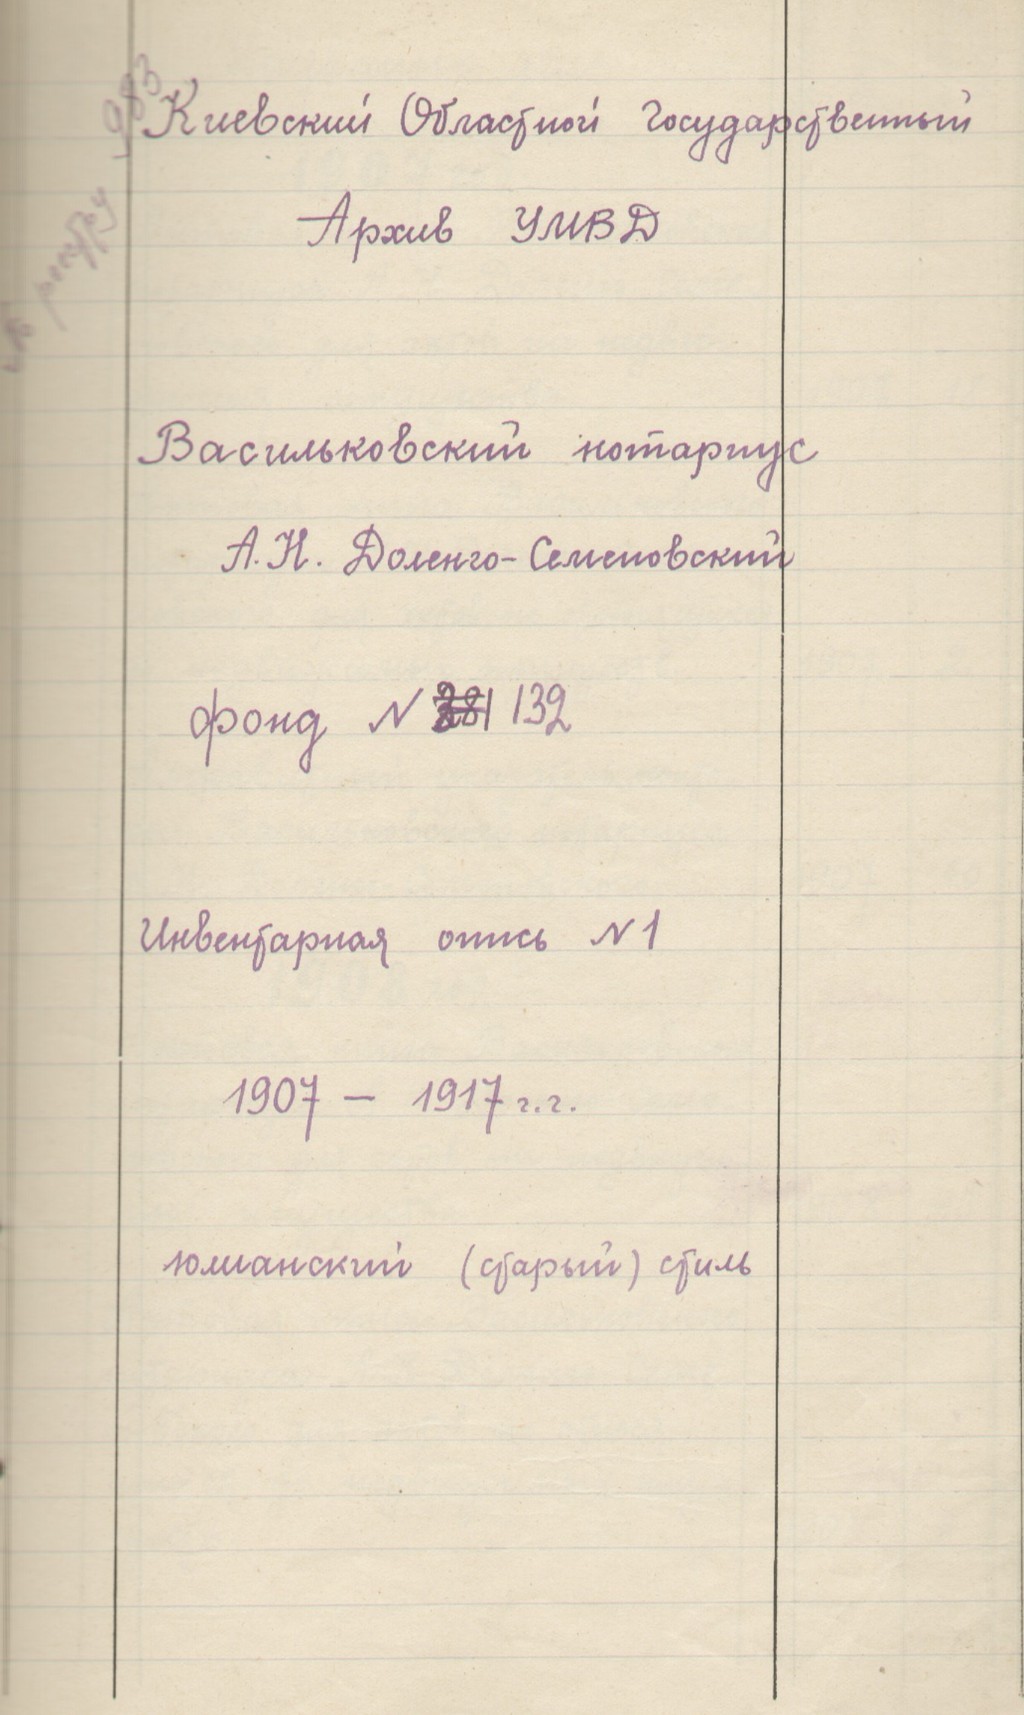 983
Киевский Областной Государственный
Архив УМВД
Васильковский нотариус
А.Н. Доленго-Семеновский
фонд N 132
Инвентарная опись N 1
1907 — 1917 г.г.
юлианский (старый) стиль